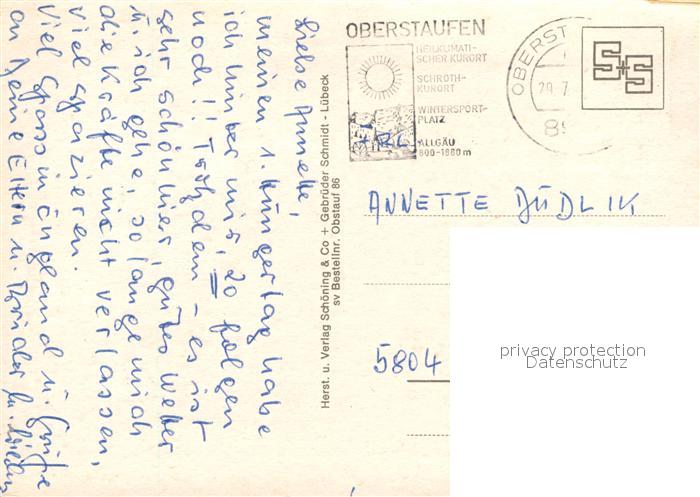 Liebe Annette,
meinen 1. Hungertag habe
ich hinter mir, 20 folgen
noch!! Trotzdem – es ist
sehr schön hier, gutes Wetter
u. ich gehe, solange mich
die Kräfte nicht verlassen,
viel spazieren.
Viel Spass in England u. Grüße
an Deine Eltern u. Brüder
Herst. u. Verlag Schöning & Co + Gebrüder Schmidt - Lübeck
sv Bestellnr. Obstauf 86
OBERSTAUFEN
HEILKLIMATI-
SCHER KURORT
SCHROTH-
KURORT
WINTERSPORT-
PLATZ
ALLGÄU
800-1860 m
OBERST
29.7
89
S+S
ANNETTE BUDLIK
5804
privacy protection
Datenschutz